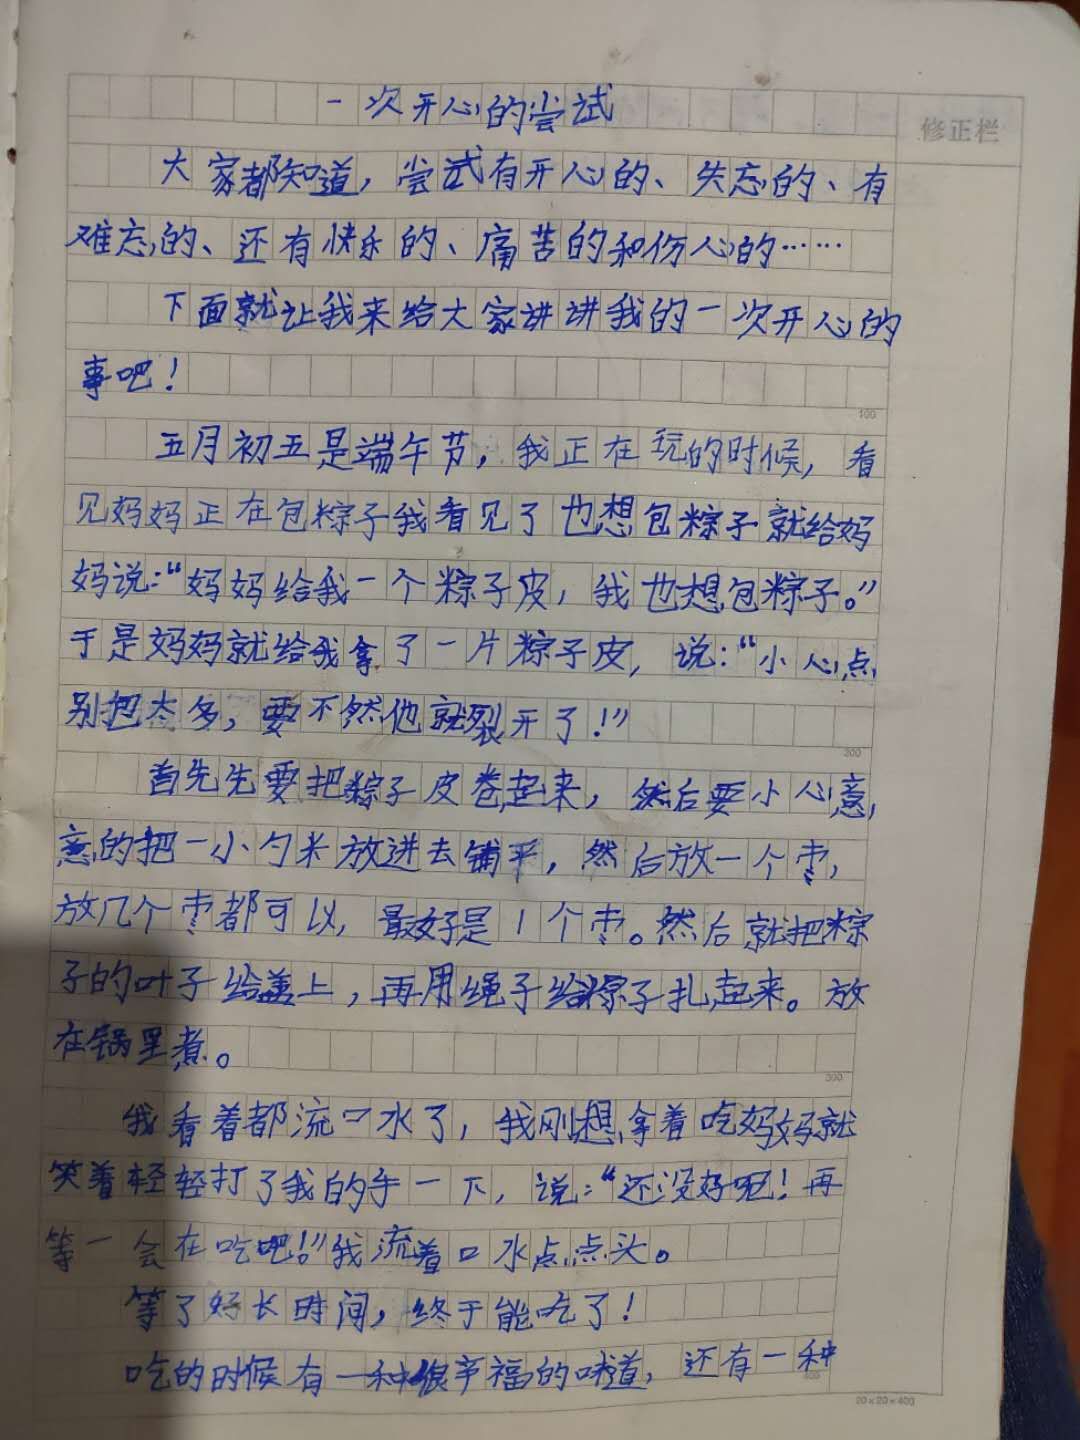 一次开心的尝试
修正栏
大家都知道，尝试有开心的、失忘的、有
难忘的、还有快乐的、痛苦的和伤心的……
下面就让我来给大家讲讲我的一次开心的
事吧！
100
五月初五是端午节，我正在玩的时候，看
见妈妈正在包粽子我看见了也想包粽子就给妈
妈说：“妈妈给我一个粽子皮，我也想包粽子。”
于是妈妈就给我拿了一片粽子皮，说：“小心点
别把太多，要不然他就裂开了！”
200
首先先要把粽子皮卷起来，然后要小心意
意的把一小勺米放进去铺平，然后放一个枣，
放几个枣都可以，最好是1个枣。然后就把粽
子的叶子给盖上，再用绳子给粽子扎起来。放
在锅里煮。
300
我看着都流口水了，我刚想拿着吃妈妈就
笑着轻轻打了我的手一下，说：“还没好呢！再
等一会在吃吧！”我流着口水点点头。
等了好长时间，终于能吃了！
吃的时候有一种很幸福的味道，还有一种
400
20×20=400